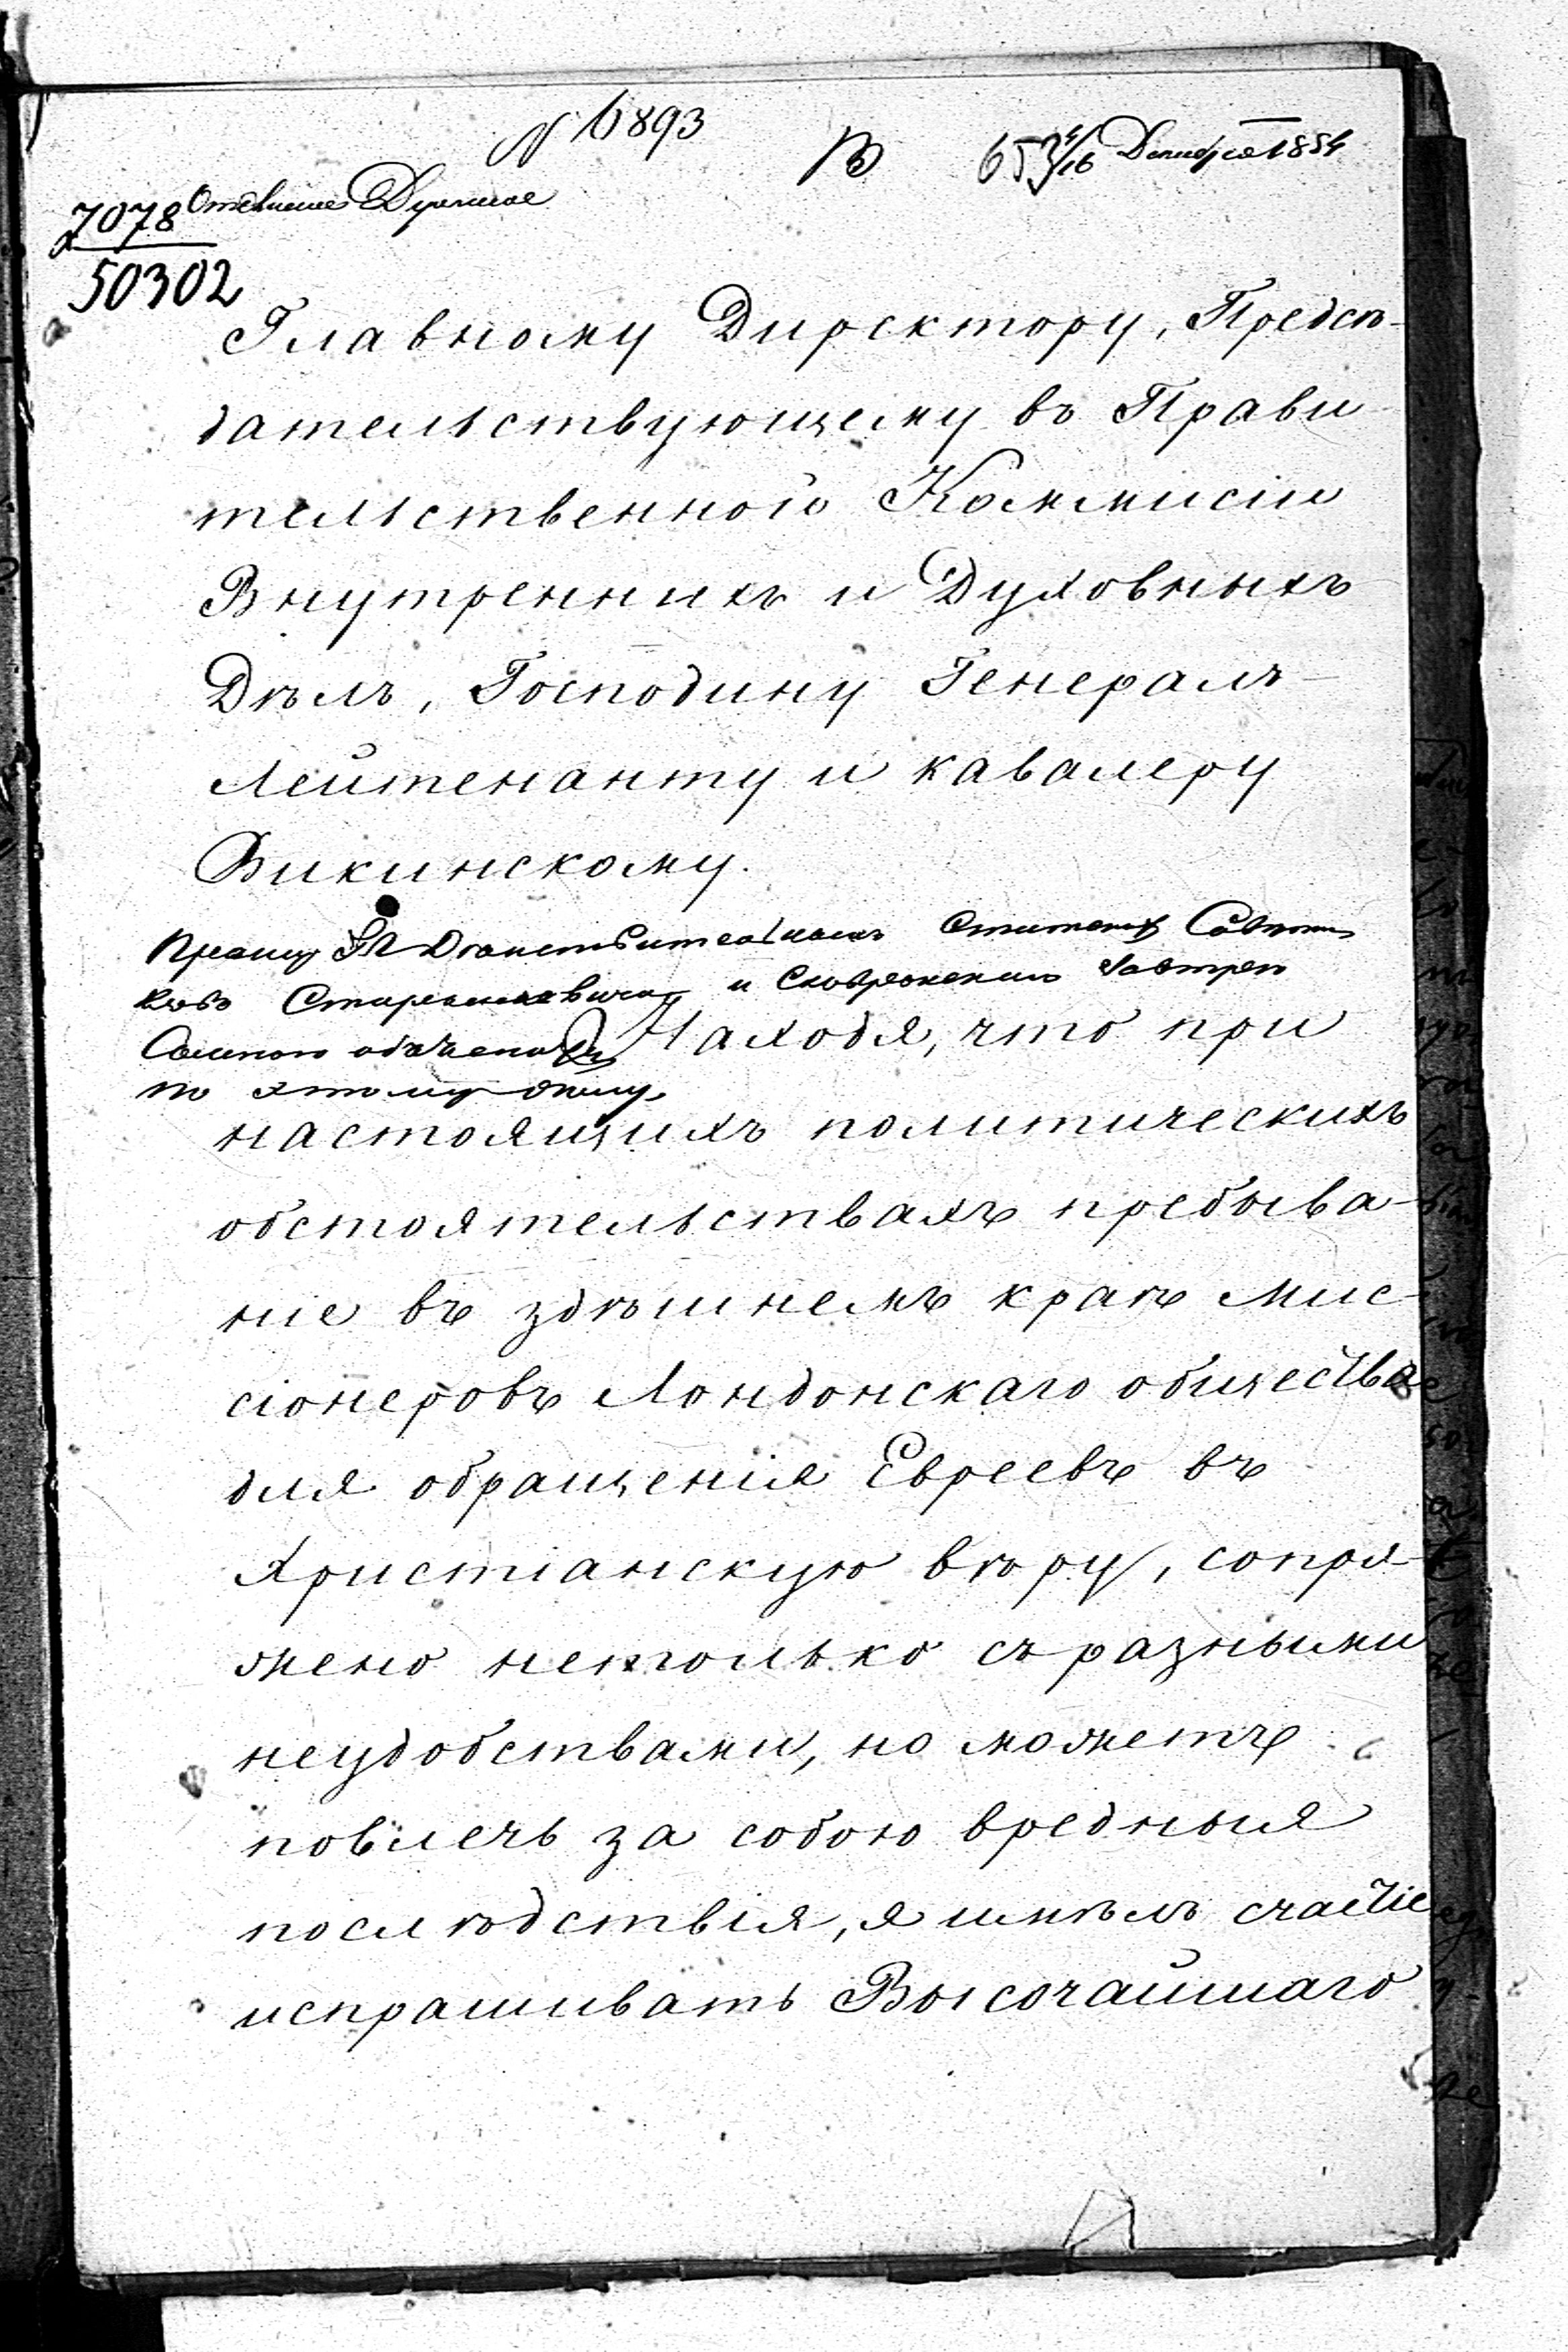 N 6893
В 653 4/16 Декабря 1854
7078 Отделение Духовное
50302
Главному Директору, Предсѣ-
дательствующему въ Прави-
тельственной Коммисіи
Внутреннихъ и Духовныхъ
Дѣлъ, Господину Генералъ-
Лейтенанту и кавалеру
Викинскому.
Прошу Гг Дѣйствительныхъ Статскихъ Совѣтни
ковъ Старынкевича и завтрѣ
со мною
по этому дѣлу
Находя, что при
настоящихъ политическихъ
обстоятельствахъ пребыва-
ніе въ здѣшнемъ краѣ мис-
сіонеровъ Лондонскаго общества
для обращенія Евреевъ въ
Христіанскую вѣру, сопря-
жено нетолько съ разными
неудобствами, но можетъ
повлечь за собою вредныя
послѣдствія, я имѣлъ счастіе
испрашивать Высочайшаго